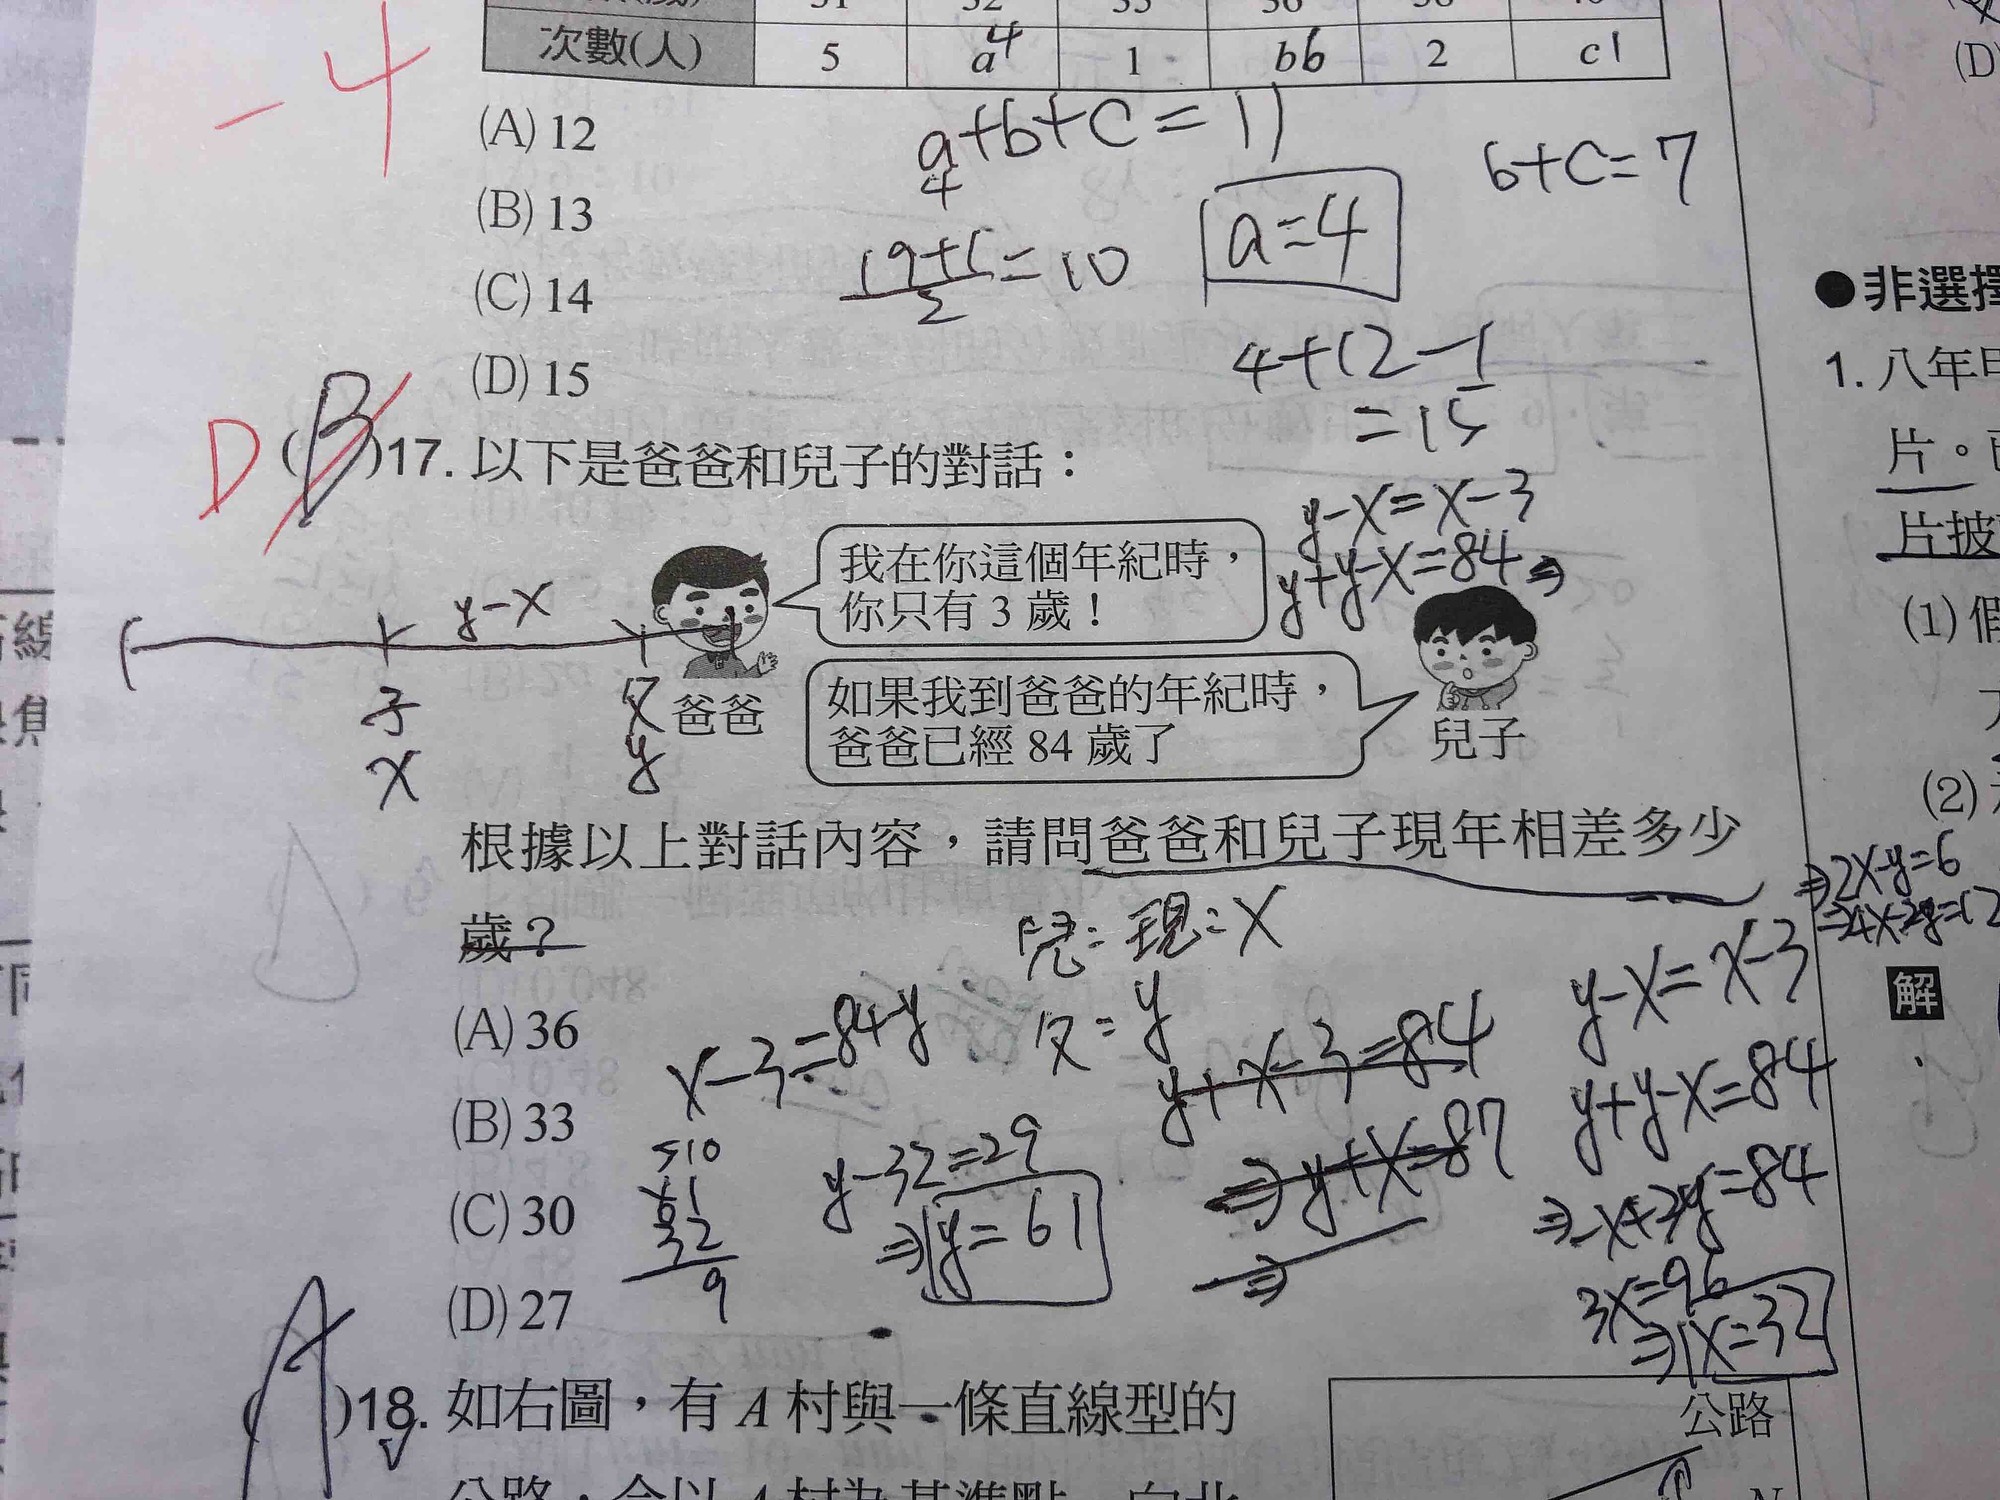 次數(人) 5 a4 1 b6 2 c1
-4
(A) 12
(B) 13
(C) 14
(D) 15
a+b+c=11
4
b+c=7
19+1/2=10
a=4
4+12-1
=15
D (B)17. 以下是爸爸和兒子的對話：
我在你這個年紀時，
你只有 3 歲！
爸爸
如果我到爸爸的年紀時，
爸爸已經 84 歲了
兒子
y-x=x-3
y+y-x=84⇒
y-x
子
x
父
y
根據以上對話內容，請問爸爸和兒子現年相差多少
歲？
(A) 36
(B) 33
(C) 30
(D) 27
兒：現：x
父：y
x-3=84-y
y+x-3=84
⇒y+x=87
⇒
y-32=29
⇒y=61
510
61
32
9
⇒2x-y=6
⇒4x-2y=12
y-x=x-3
y+y-x=84
⇒-x+2y=84
3x=96
⇒x=32
(A)18. 如右圖，有 A 村與一條直線型的
公路
N
(D)
●非選擇
1. 八年甲
片。
片披
(1) 假
(2)
解